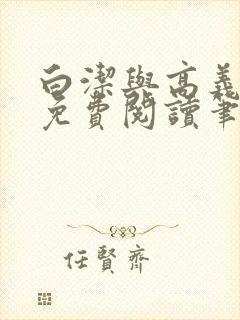 白潔與高義
免費閱讀筆
任賢齊